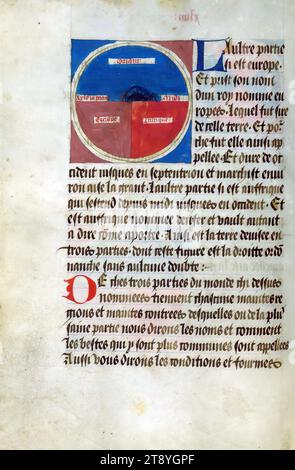 orient
septentrion
midi
europe
auffrique
Laultre partie
si est europe.
Et prist son nom
dun roy nomme eu
ropes. lequel fut sire
de celle terre. Et por
che fut elle ainsi ap
pellee. Et dure de oc
cident iusques en septentrion et marchist envi
ron aise la grant. Laultre partie si est auffrique
qui sestend depuis midi iusques en occident. Et
est auffrique nommee de ufer et vault autant
a dire come aportee. Ainsi est la terre devisee en
trois parties. dont ceste figure est la droitte or
donance sans aulcune doubte:
De ches trois parties du monde chi dessus
nommees tiennent chascune maintes re
gions et maintes contrees desquelles ou de la plus
saine partie nous dirons les noms et comment
les bestes qui y sont plus communes sont appellees
Aussi vous dirons les conditions et fourmes
alamy
Image ID: 2T8YGPF
www.alamy.com